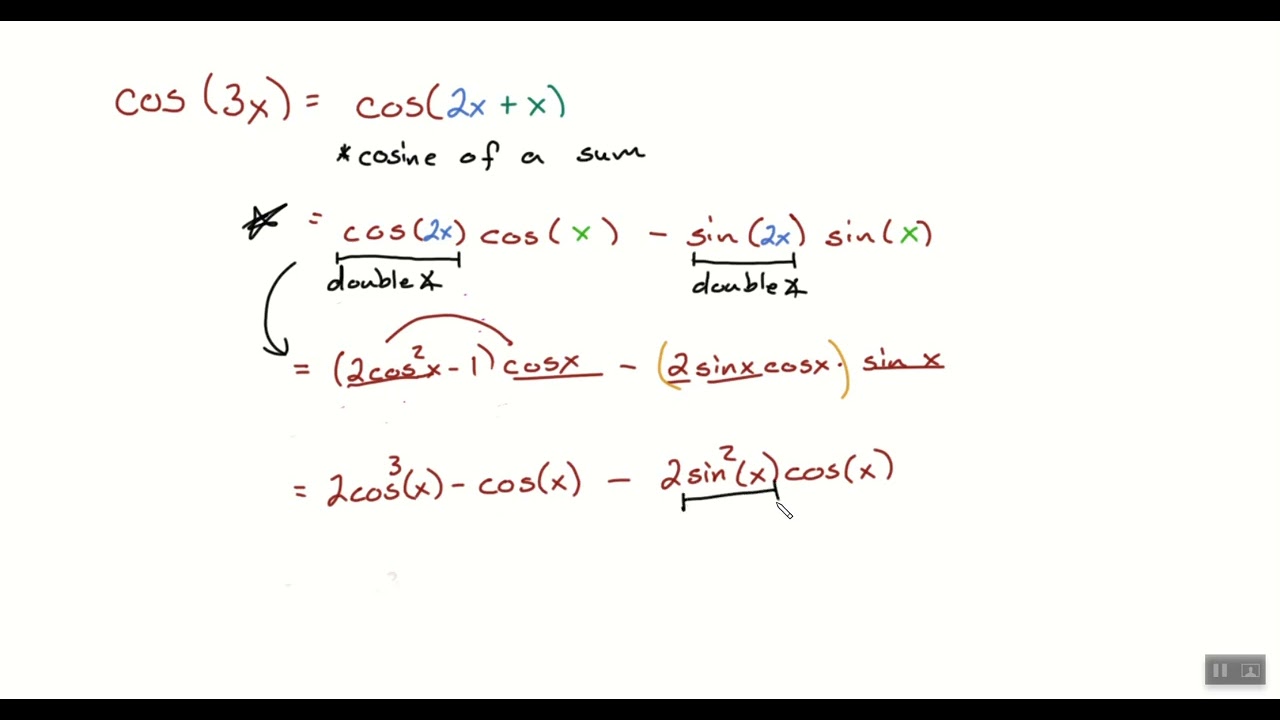 cos(3x) = cos(2x + x)
*cosine of a sum
= cos(2x) cos(x) - sin(2x) sin(x)
double∡ double∡
= (2cos²x - 1)cosx - (2sinxcosx·) sin x
= 2cos³(x) - cos(x) - 2sin²(x)cos(x)